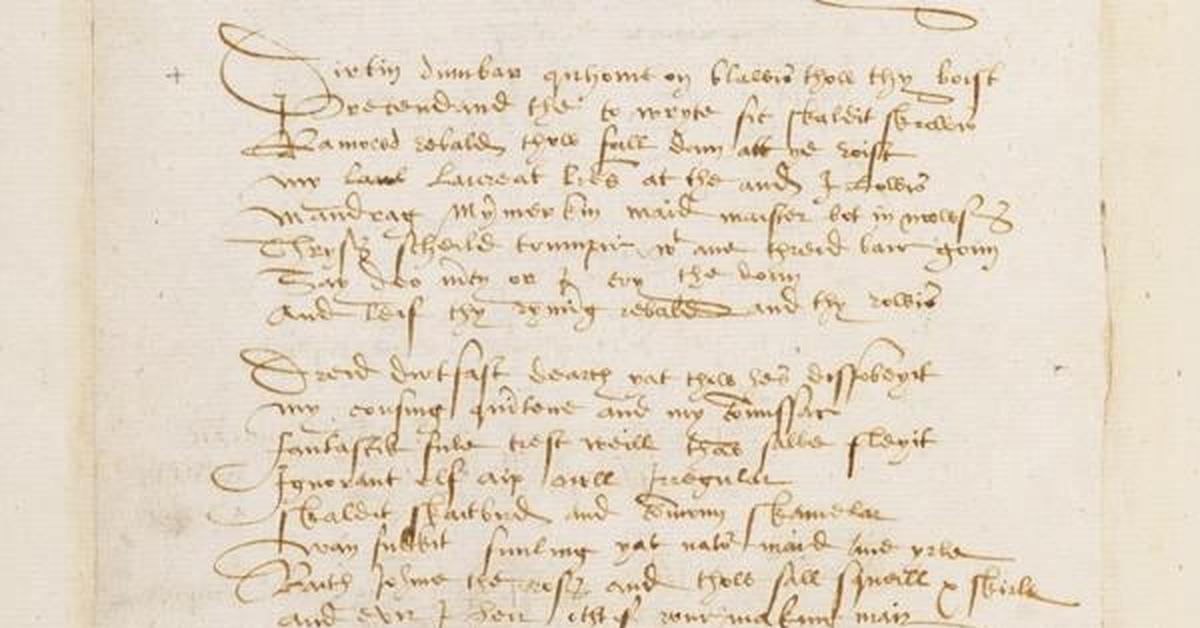 Dirtin dumbar quhome on blawis thow thy boist
Pretendand the to wryte sic skaldit skrowis
Ramowd rebald thow fall doun att the roist
my laureat lres at the and I lowis
mandrag mymerkin maid maister bot in mows
Thrys scheild trumpir wt ane threid bair goun
Say deo mercy or I cry the doun
And leif thy ryming rebald and thy rowis

Dreid dirtfast dearch yat thow hes dissobeyit
my cousing quintene and my commissar
fantastik fule trest weill thow salbe fleyit
Ignorant elf aip owll irregular
skaldit skaitbird and commoun skamelar
wan fukkit funling yat natour maid ane yrle
Baith Johine the ross and thow sall squeill & skirle
and evir I heir ocht of your making mair